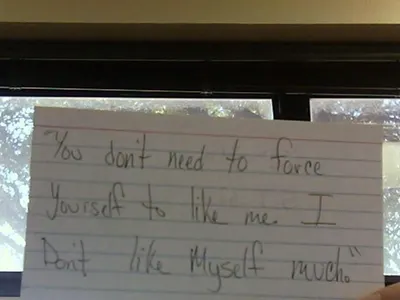 "You don't need to force
Yourself to like me. I
Don't like Myself much."